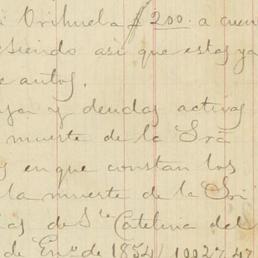 Orihuela $200. a cuen
siendo asi que estas ya
autos.
y deudas activas
muerte de la Sra
en que constan los
la muerte de la Sr
de Sta Catelina del
de Eno. de 1854